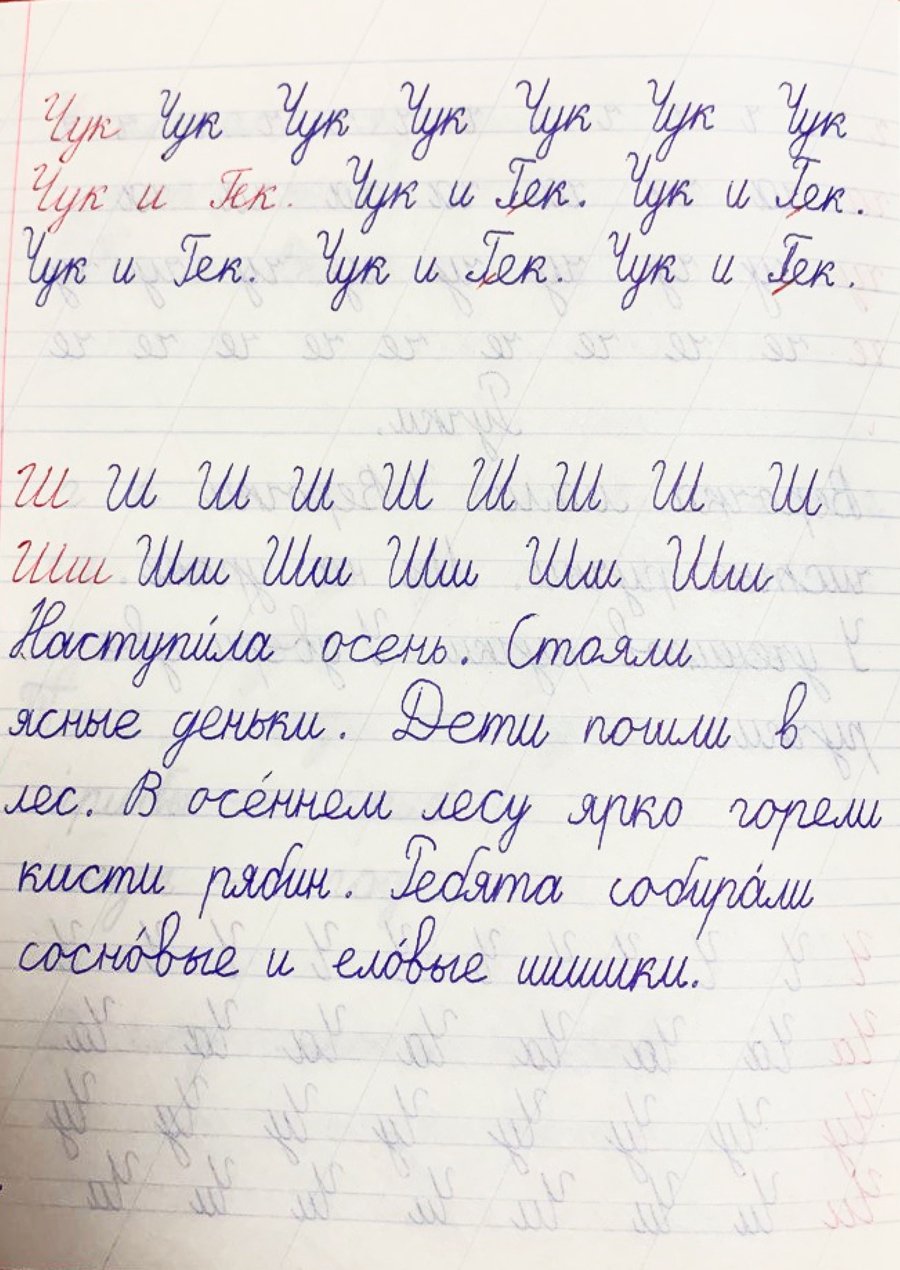 Чук Чук Чук Чук Чук Чук Чук
Чук и Гек. Чук и Гек. Чук и Гек.
Чук и Гек. Чук и Гек. Чук и Гек.
Ш Ш Ш Ш Ш Ш Ш Ш Ш
Шш Шш Шш Шш Шш Шш
Наступи́ла осень. Стояли
ясные деньки. Дети пошли в
лес. В осе́ннем лесу ярко горели
кисти рябин. Ребята собира́ли
сосно́вые и ело́вые шишки.